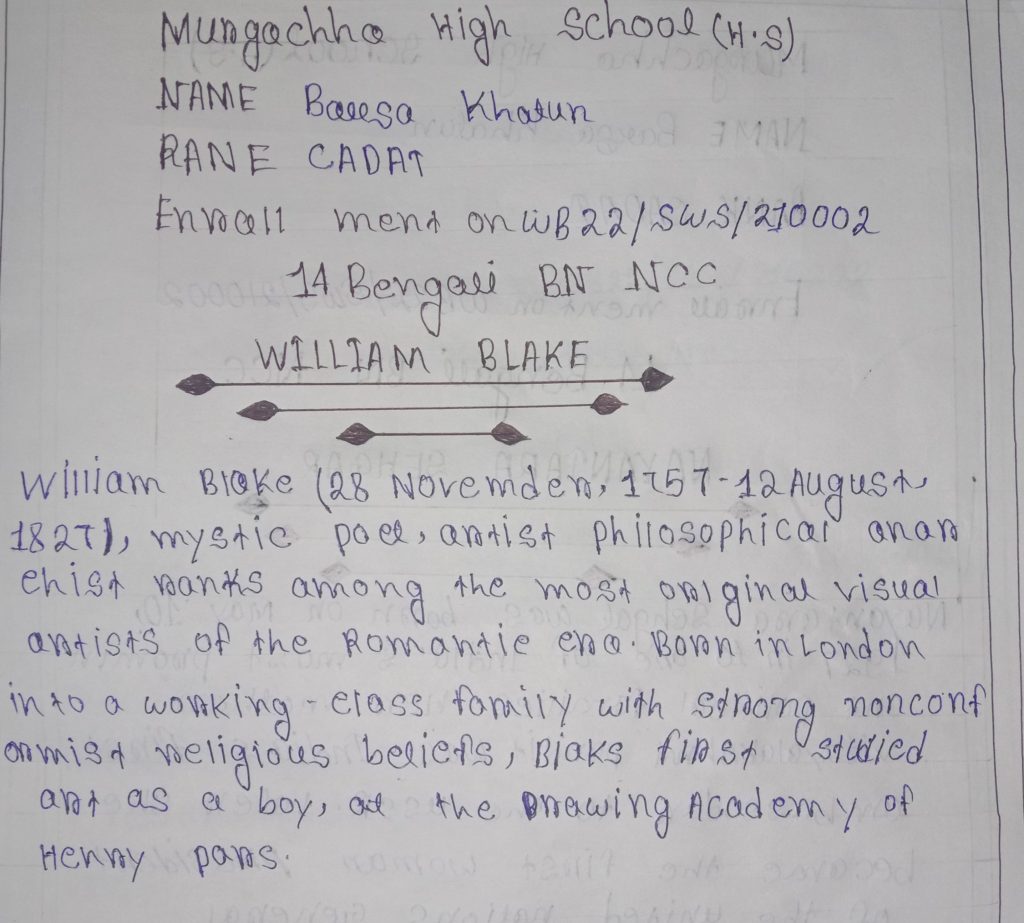 Mungachha High School (H.S)
NAME Baresa Khatun
RANE CADAT
Enroall ment on WB22/SWS/210002
14 Bengali BN NCC
WILLIAM BLAKE
William Blake (28 Novemder, 1757-12 August,
1827), mystic poet, artist philosophical anar
chist ranks among the most original visual
artists of the Romantic era. Born in London
into a working-class family with strong nonconf
ormist religious beliefs, Blaks first studied
art as a boy, at the Drawing Academy of
Henry pars.